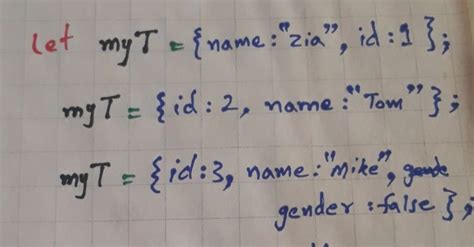 let myT = {name:"zia", id:1};
myT = {id:2, name:"Tom"};
myT = {id:3, name:"Mike",
gender:false};